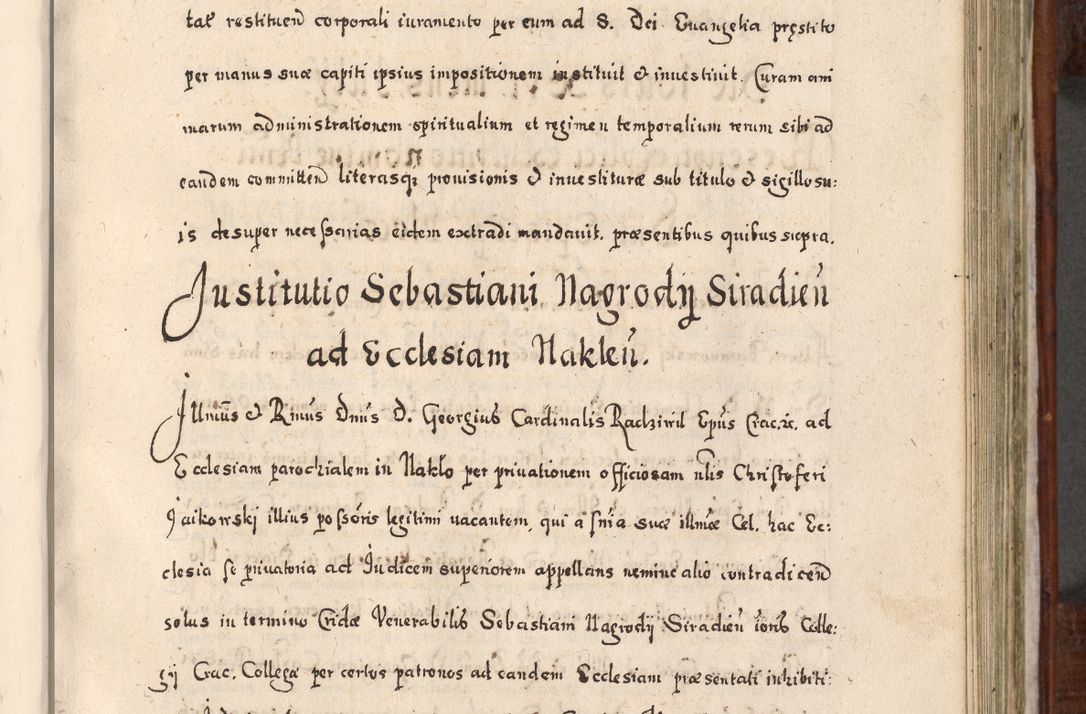 tał restituen̄ corporali iuramento per eum ad S. Dei Euangelia pręstito
per manus suæ capiti ipsius impositionem instituit & inuestiuit. Curam ani
marum administrationem spiritualium et regimen temporalium rerum sibi ad
eandem committen̄ literasqꝫ prouisionis & inuestituræ sub titulo & sigillo su:
is desuper necessarias eidem extradi mandauit. præsentibus quibus supra.
Institutio Sebastiani Nagrodij Siradien̄
ad Ecclesiam Naklen̄.
Illmus̄ & Rmus̄ Dnus̄ D. Georgius Cardinalis Radziwil Epus̄ Crac. &c. ad
Ecclesiam parochialem in Nakło per priuationem officiosam nlis̄ Christoferi
Jaikowskj illius possoris̄ legitimi uacantem, qui a sn̄ia suæ illmæ Cel. hac Ec:
clesia se priuatoria ad Iudicem superiorem appellans nemine alio contradicen̄
solus in termino Cridæ Venerabilis Sebastiani Nagrodij Siradien̄ ioris̄ Colle:
gij Crac. Collegæ per certos patronos ad eandem Ecclesiam præsentati inhibiti: